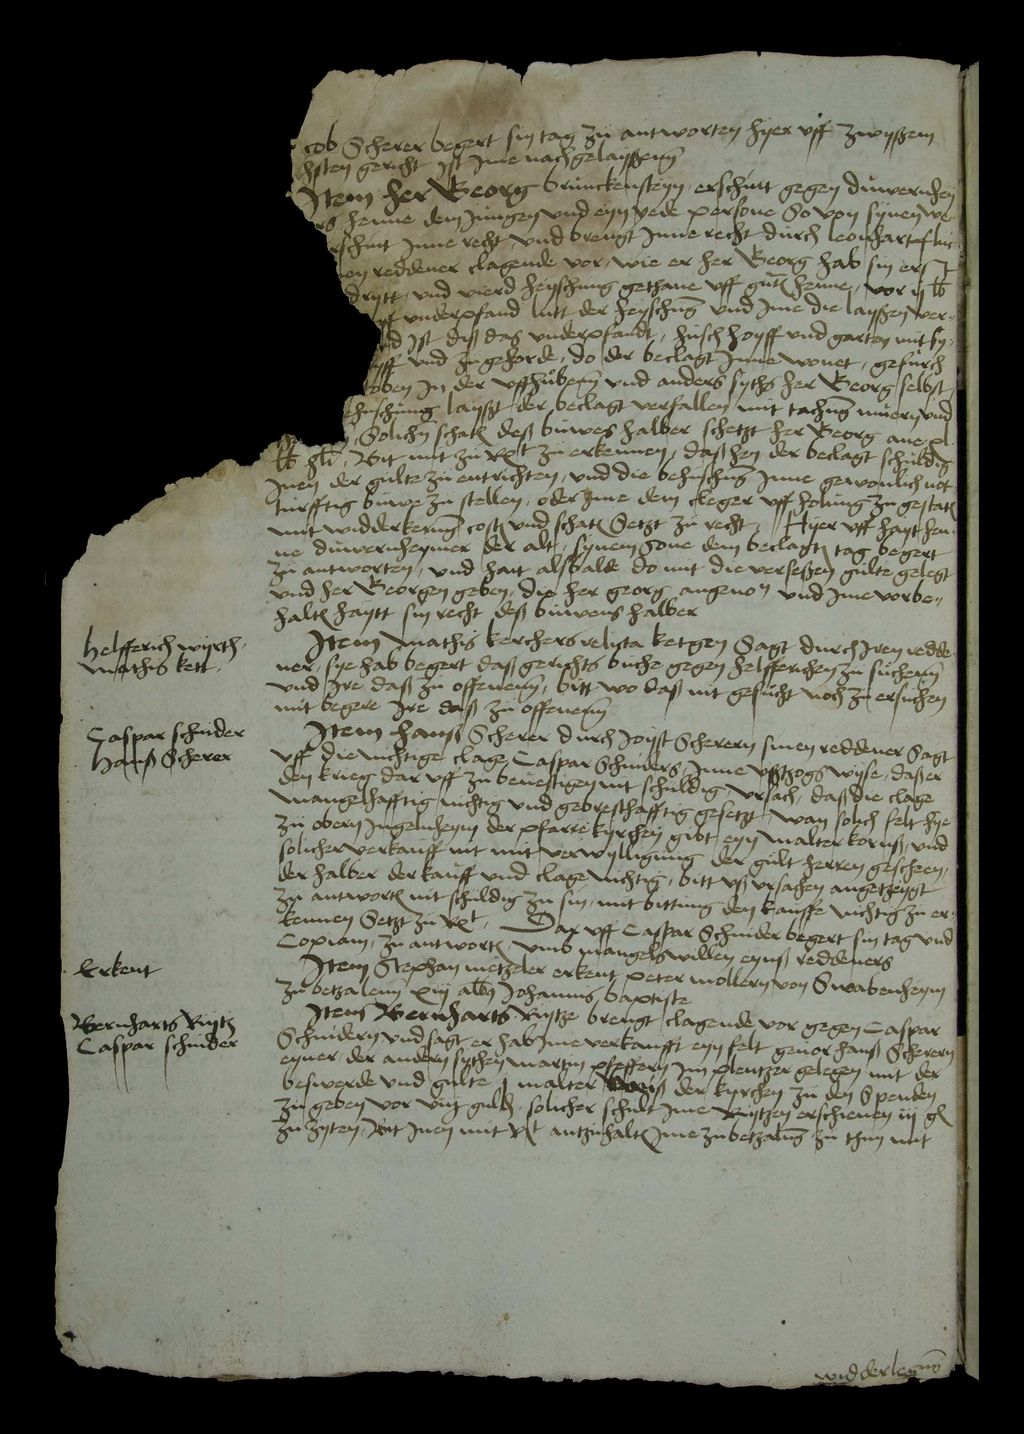 cob Scherer begert sin tag zu antworten hyer uff zwyßem
hsten gericht ist ime nachgelayßenn
Item her Georg brunckensteyn erschint gegen duwernhey
rg henne dem jungen und eyn yede persone So von synen we
rschint inne recht und brengt inne recht durch leonhart flic
en reddener clagende vor, wie er her Georg hab sin erst
dritt und vierd heyschung gethane uff gutz henne, vor ij lb
uff underpfand lutt der heyschung und ime die layßen ver-
nd ist diß das underpfandt, husch hoyff und garten mit sy-
yff und zugehorde, do der beclagt inne wonet, gefurch
oben in der uffhubenn und anders syths her Georg selbst
ehuschung layßt der beclagt verfallen mit tachung muern und
Solichen schaden deß buwes halber schetzt her Georg ane xl
lb hlr, Bit mit zu Recht zu erkennen, daß hen der beclagt schuldig
inen der gulte zu entrichten, und die behuschung inne gewonlich not-
turfftig buwe zu stellen, oder ime dem cleger uff holung zu gestaten
mit widderkerung cost und schaden Setzt zu recht, Hyer uff hayt hen-
ne duwernheymer der alt, synem sone dem beclagten tag begert
zu antworten, und hait alsbalde do mit die verseßen gulte gelegt
und her Georgen geben, die her georg angenomen und ime vorbe-
halten haytt sin recht deß buwens halber
Helfferich wyrth
Mathis kett
Item Mathis kerchers relicta ketgen Sagt durch iren redde-
ner, sye hab begert daß gerichts buche gegen helfferichen zu suchenn
und ire daß zu offenenn, bitt wo daß nit gesucht noch zu ersuchen
mit begere ire daß zu offenenn
Caspar schnider
Hanß Scherer
Item Hanß Scherer durch Joyst Scherern sinen reddener Sagt
uff die nichtige clage Caspar Schniders, inne ußzogs wyse, daß er
den krieg dar uff zu bevestigen nit schuldig ursach, daß die clage
mangelhafftig nichtig und gebresthafftig gesetzt, wan solich felt hye
zu obern ingelnheym der pfarrekyrchen gibt eyn malter korns, und
solicher verkauff nit mit verwylligung der gult herren gescheen,
der halber der kauff und clage nichtig, bitt uß ursachen angetzeygt
zu antworten nit schuldig zu sin, mit bittung den kauffe nichtig zu er-
kennen Setzt zu Recht, Dar uff Caspar Schnider begert sin tag und
Copiam, zu antworten umb mangels willen eynß reddeners
Erkent
Item Stephan metzeler erkent peter mollern von Swabenheym
zu betzalenn xiij albus Johannis baptiste
Bernharts Ryitz
Caspar schnider
Item Bernharts Ryitze brengt clagende vor gegen Caspar
Schnidern und sagt er hab ime verkaufft eyn felt gevor hanß Scherern
eyner, der andern sythen martin pfeffern im plentzer gelegen mit der
beswerde und gulte j malter korns der kyrchen zu den Spenden
zu geben vor viij gulden, solicher schult ime Ryitzen erschienen iij gl
zu zyten, Bit inen mit Recht antzuhalten ime zu betzalung zu thun mit
widderlegung